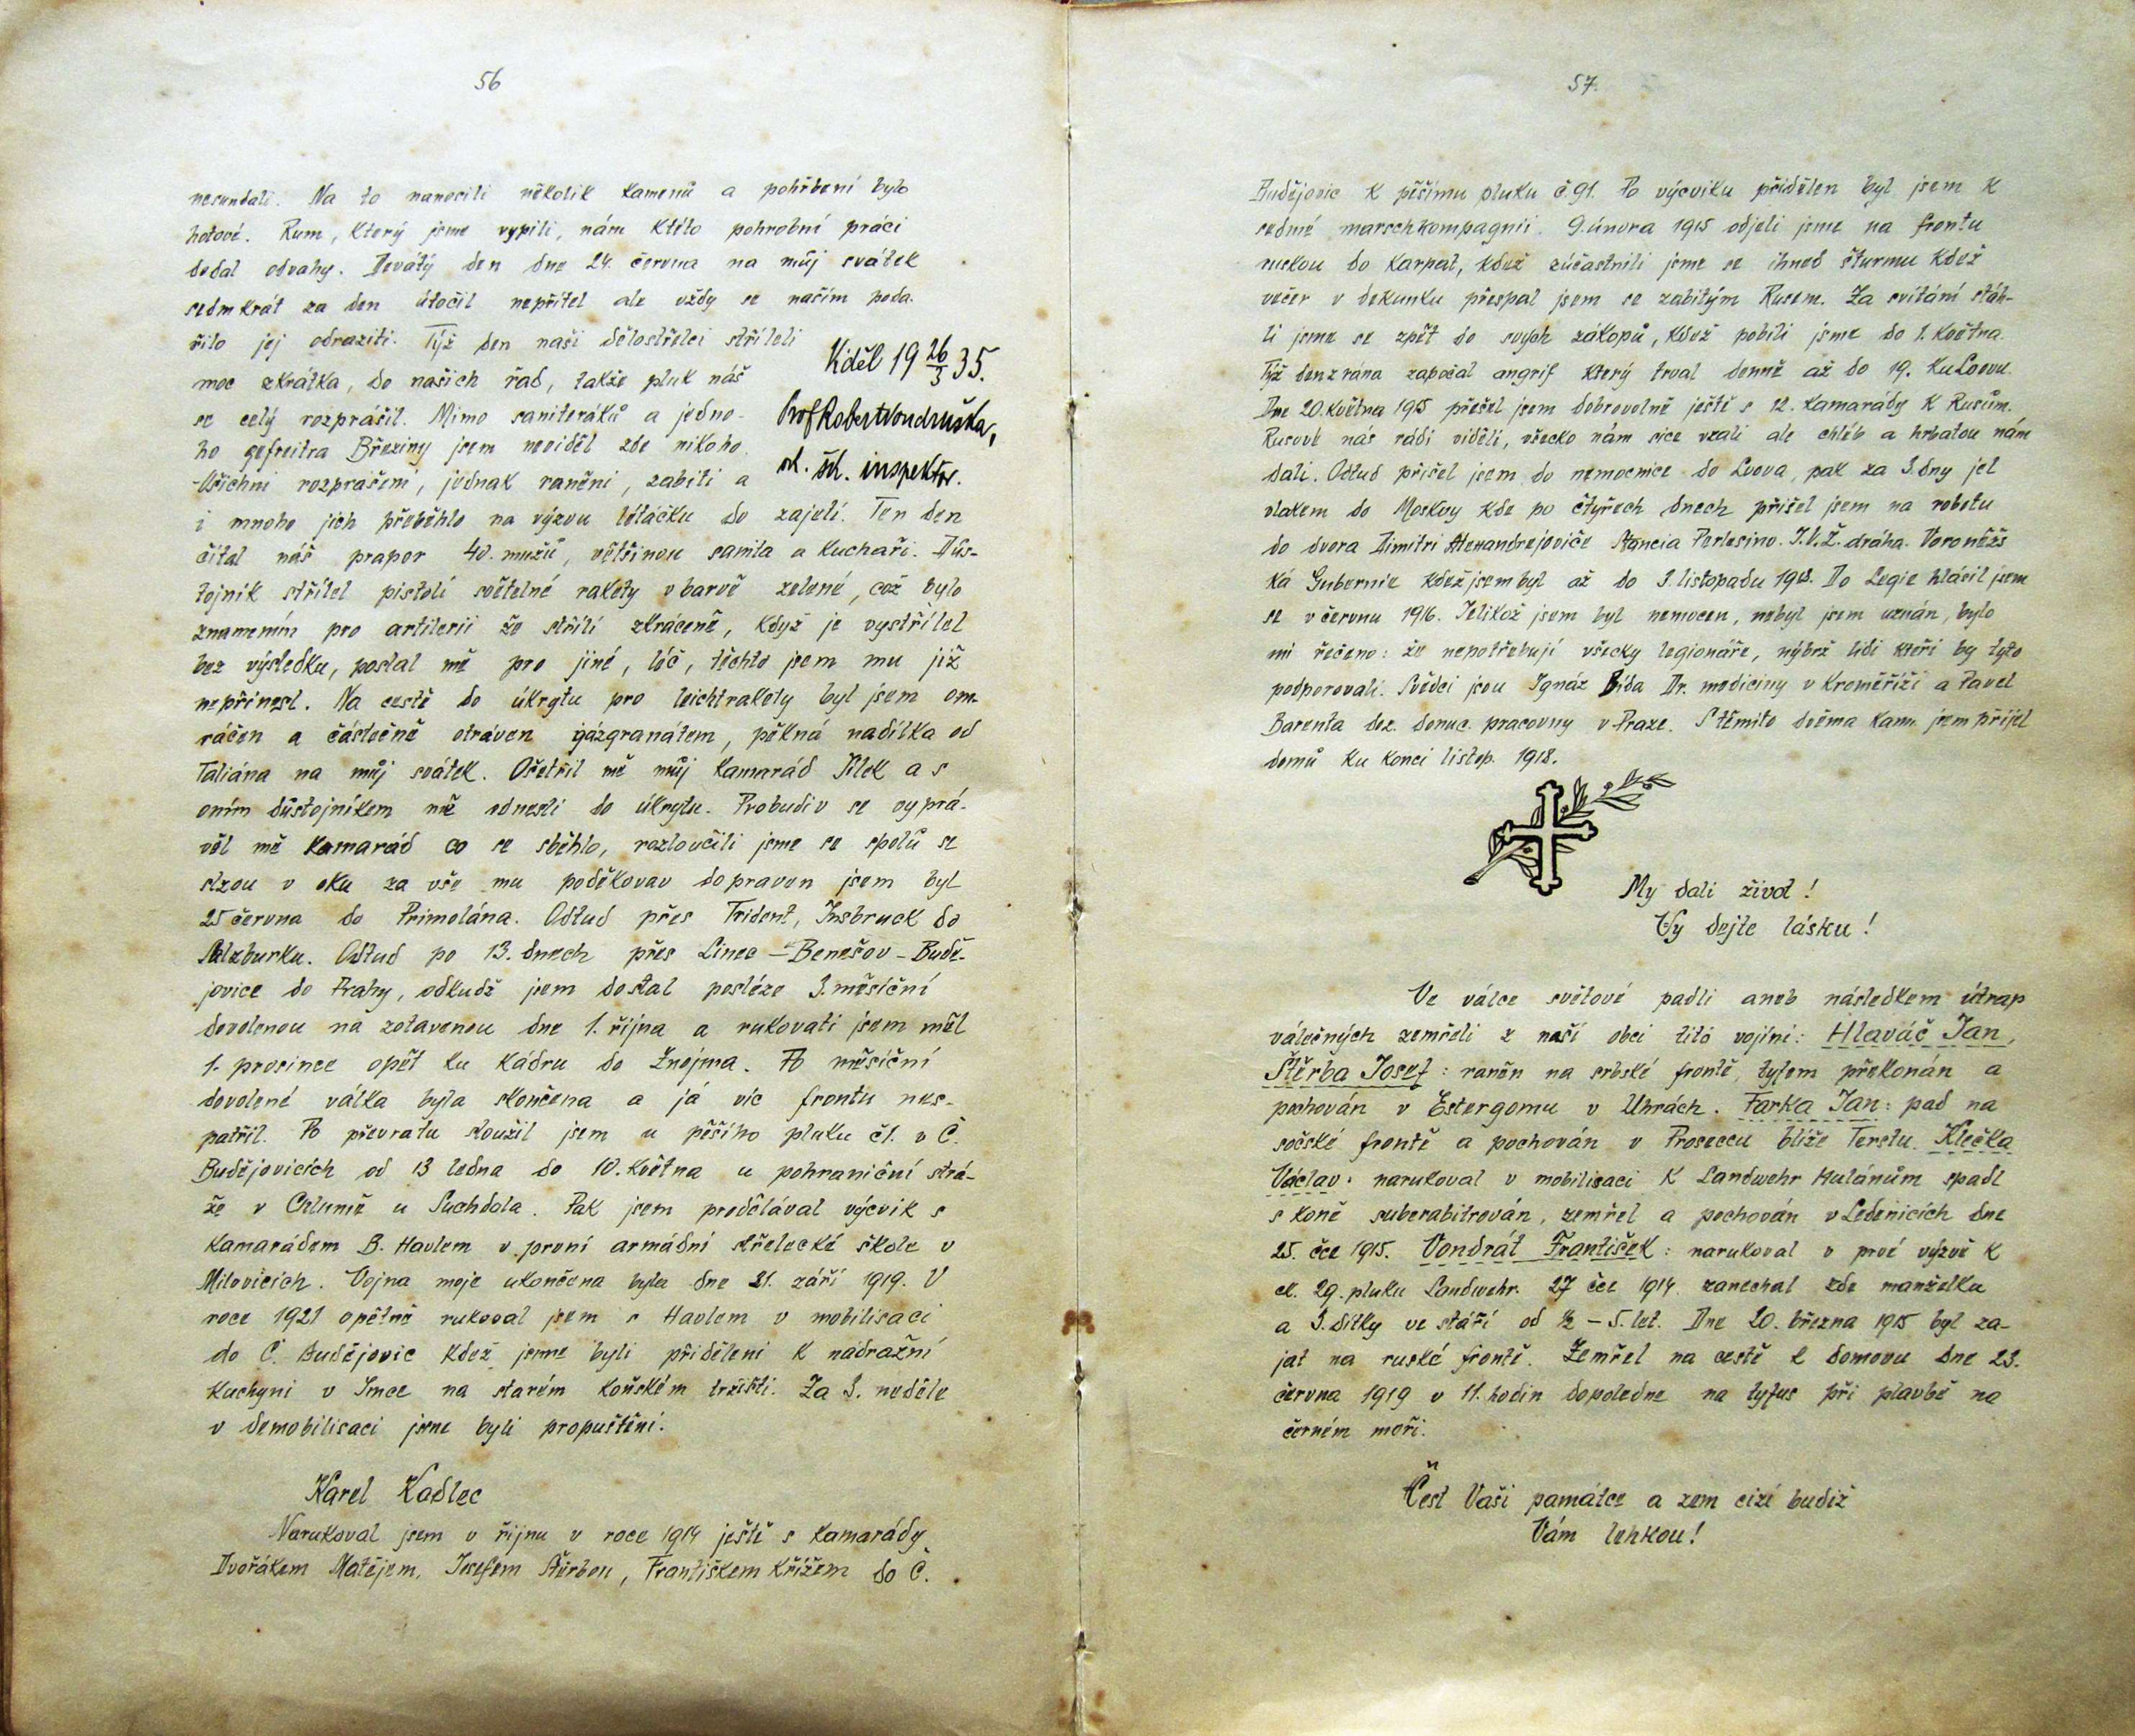 56
nesundali. Na to nanosili několik kamenů a pohřbení bylo
hotové. Rum, který jsme vypili, nám ktéto pohrobní práci
dodal odvahy. Devátý den dne 24. června na můj svátek
sedmkrát za den útočil nepřítel ale vždy se našim poda-
řilo jej odraziti. Týž den naši dělostřelci stříleli
moc zkrátka, do našich řad, takže pluk náš
se celý rozprášil. Mimo saniteráků a jedno-
ho gefreitra Březiny jsem neviděl zde nikoho.
Všichni rozprašeni, jednak raněni, zabiti a
i mnoho jich přeběhlo na výzvu létáčku do zajetí. Ten den
čítal náš prapor 40. mužů, většinou sanita a kuchaři. Důs-
tojník střílel pistolí světelné rakety v barvě zelené, což bylo
znamením pro artilerii že střílí zkráceně, když je vystřílel
bez výsledku, poslal mě pro jiné, léč, těchto jsem mu již
nepřinesl. Na cestě do úkrytu pro leichtrakety byl jsem om-
ráčen a částečně otráven gázgranátem, pěkná nadílka od
Taliána na můj svátek. Ošetřil mě můj kamarád Jílek a s
oním důstojníkem mě odnesli do úkrytu. Probudiv se vyprá-
věl mě kamarád co se sběhlo, rozloučili jsme se spolu se
slzou v oku za vše mu poděkovav dopraven jsem byl
25 června do Primolána. Odtud přes Trident, Insbruck do
Salzburku. Odtud po 13. dnech přes Linec – Benešov – Budě-
jovice do Prahy, odkudž jsem dostal posléze 3. měsíční
dovolenou na zotavenou dne 1. října a rukovati jsem měl
1. prosince opět ku kádru do Znojma. Po měsíční
dovolené válka byla skončena a já víc frontu nes-
patřil. Po převratu sloužil jsem u pěšího pluku č1. v Č.
Budějovicích od 13 ledna do 10. května u pohraniční strá-
že v Chlumě u Suchdola. Pak jsem prodělával výcvik s
kamarádem B. Havlem v první armádní střelecké škole v
Milovicích. Vojna moje ukončena byla dne 21. září 1919. V
roce 1921 opětně rukoval jsem s Havlem v mobilisaci
do Č. Budějovic kdež jsme byli přiděleni k nádražní
kuchyni v Lince na starém koňském tržišti. Za 3. neděle
v demobilisaci jsme byli propuštěni.
Karel Kadlec
Narukoval jsem v říjnu v roce 1914 ještě s kamarády
Dvořákem Matějem, Josefem Štěrbou, Františkem Křížem do Č.
Viděl 19 26/3 35.
Prof Robert Vondruška,
ok. šk. inspektor.
57.
Budějovic k pěšímu pluku č.91. Po výcviku přidělen byl jsem k
sedmé marschkompagnii. 9. února 1915 odjeli jsme na frontu
ruskou do Karpat, kdež zúčastnili jsme se ihned šturmu kdež
večer v dekunku přespal jsem se zabitým Rusem. Za svítání stáh-
li jsme se zpět do svých zákopů, kdož pobili jsme do 1. května.
Týž den z rána započal angrif který trval denně až do 19. ku Lvovu.
Dne 20. května 1915 přešel jsem dobrovolně ještě s 12. kamarády k Rusům.
Rusové nás rádi viděli, všecko nám sice vzali ale chléb a hrbatou nám
dali. Odtud přišel jsem do nemocnice do Lvova, pak za 3. dny jel
vlakem do Moskvy kde po čtyřech dnech přišel jsem na robotu
do dvora Dimitri Alexandrejoviče Stancia Perlesino. J.V.Ž. dráha. Voroněžs
ká Gubernie kdež jsem byl až do 3. listopadu 1918. Do Legie hlásil jsem
se v červnu 1916. Jelikož jsem byl nemocen, nebyl jsem uznán, bylo
mi řečeno: že nepotřebují všecky legionáře, nýbrž lidi kteří by tyto
podporovali. Svědci jsou Ignáz Bída Dr. mediciny v Kroměříži a Pavel
Barenta doz. donuc. pracovny v Praze. S těmito dvěma kam. jsem přijel
domů ku konci listop. 1918.
My dali život!
Vy dejte lásku!
Ve válce světové padli aneb následkem útrap
válečných zemřeli z naší obci tito vojíni: Hlaváč Jan,
Štěrba Josef: raněn na srbské frontě, tyfem překonán a
pochován v Estergomu v Uhrách. Farka Jan: pad na
sočské frontě a pochován v Proseccu blíže Terstu. Klečka
Václav: narukoval v mobilisaci k Landwehr Hulánům spadl
s koně suberabitrován, zemřel a pochován v Ledenicích dne
25. čce 1915. Vondrát František: narukoval v prvé výzvě k
čl. 29. pluku Landwehr. 27 čce 1914. zanechal zde manželku
a 3. dítky ve stáří od ½ – 5. let. Dne 20. března 1915 byl za-
jat na ruské frontě. Zemřel na cestě k domovu dne 23.
června 1919 v 11. hodin dopoledne na tyfus při plavbě na
černém moři.
Čest Vaši památce a zem cizí budiž
Vám lehkou!